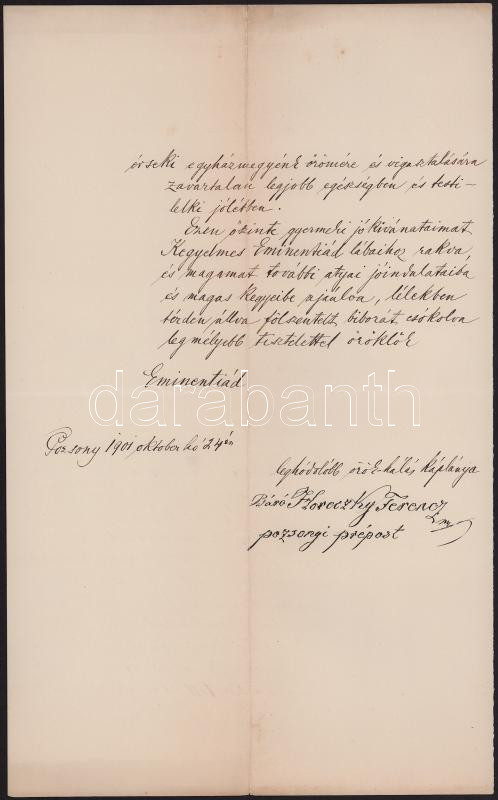 érseki egyházmegyénk örömére és vigasztalására
zavartalan legjobb egészségben és testi-
lelki jólétben.
Ezen őszinte gyermeki jókivánataimat
Kegyelmes Eminentiád lábaihoz rakva,
és magamat további atyai jóindulataiba
és magas kegyeibe ajánlva, lélekben
térden állva fölszentelt biborát csókolva
legmélyebb tisztelettel öröklök
Eminentiád
darabanth
Pozsony 1901 oktober hó 24én
leghódolóbb örök-hálás káplánya
Báró Horeczky Ferencz
pozsonyi prépost